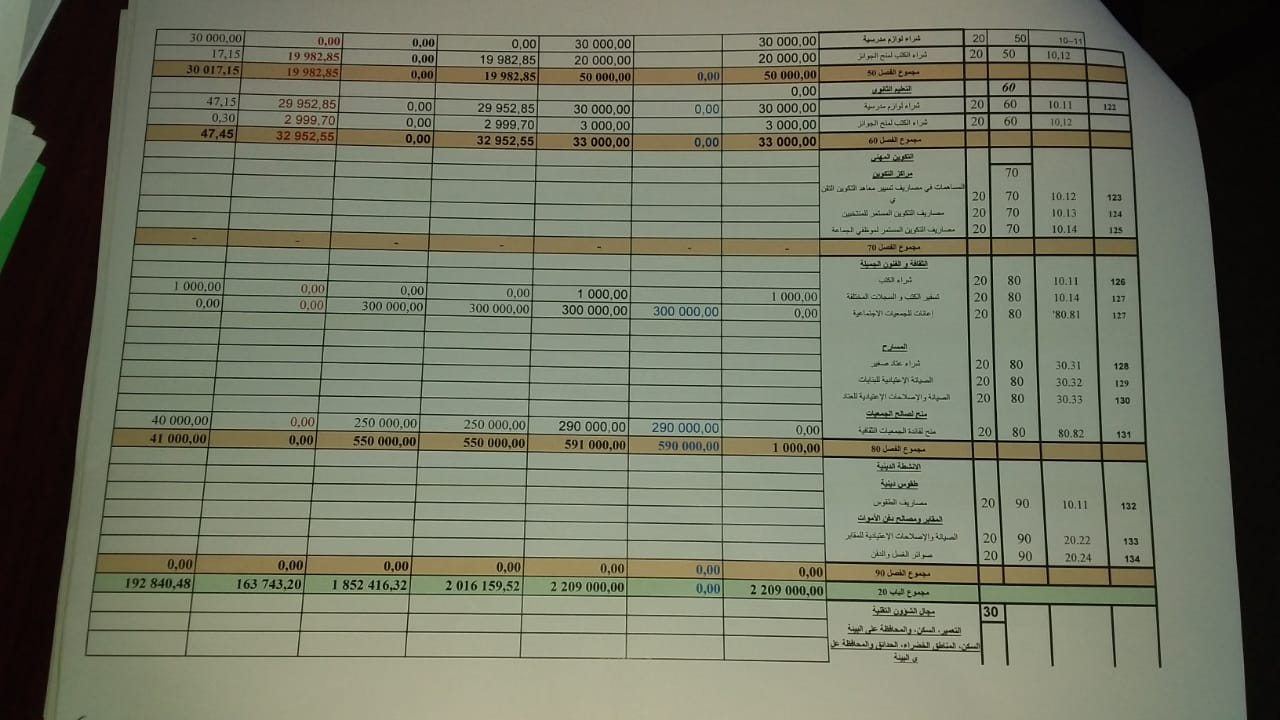 30 000,00 0,00 0,00 0,00 30 000,00 30 000,00 شراء لوازم مدرسية 20 50 10-11
17,15 19 982,85 0,00 19 982,85 20 000,00 20 000,00 شراء الكتب لمنح الجوائز 20 50 10,12
30 017,15 19 982,85 0,00 19 982,85 50 000,00 0,00 50 000,00 مجموع الفصل 50
0,00 التعليم الثانوي 60
47,15 29 952,85 0,00 29 952,85 30 000,00 0,00 30 000,00 شراء لوازم مدرسية 20 60 10.11 122
0,30 2 999,70 0,00 2 999,70 3 000,00 3 000,00 شراء الكتب لمنح الجوائز 20 60 10,12
47,45 32 952,55 0,00 32 952,55 33 000,00 0,00 33 000,00 مجموع الفصل 60
التكوين المهني
مراكز التكوين 70
المساهمات في مصاريف تسيير معاهد التكوين التقن
ي 20 70 10.12 123
مصاريف التكوين المستمر للمنتخبين 20 70 10.13 124
مصاريف التكوين المستمر لموظفي الجماعة 20 70 10.14 125
- - - - - - - مجموع الفصل 70
الثقافة و الفنون الجميلة
شراء الكتب 20 80 10.11 126
1 000,00 0,00 0,00 0,00 1 000,00 1 000,00 تسفير الكتب و السجلات المختلفة 20 80 10.14 127
0,00 0,00 300 000,00 300 000,00 300 000,00 300 000,00 0,00 إعانات للجمعيات الاجتماعية 20 80 '80.81 127
المسارح
شراء عتاد صغير 20 80 30.31 128
الصيانة الإعتيادية للبنايات 20 80 30.32 129
الصيانة والإصلاحات الإعتيادية للعتاد 20 80 30.33 130
منح لصالح الجمعيات
40 000,00 0,00 250 000,00 250 000,00 290 000,00 290 000,00 0,00 منح لفائدة الجمعيات الثقافية 20 80 80.82 131
41 000,00 0,00 550 000,00 550 000,00 591 000,00 590 000,00 1 000,00 مجموع الفصل 80
الانشطة الدينية
طقوس دينية
مصاريف الطقوس 20 90 10.11 132
المقابر ومصالح دفن الأموات
الصيانة والإصلاحات الإعتيادية للمقابر 20 90 20.22 133
صوائر الغسل والدفن 20 90 20.24 134
0,00 0,00 0,00 0,00 0,00 0,00 0,00 مجموع الفصل 90
192 840,48 163 743,20 1 852 416,32 2 016 159,52 2 209 000,00 0,00 2 209 000,00 مجموع الباب 20
مجال الشؤون التقنية 30
التعمير، السكن، والمحافظة على البيئة
السكن، المناطق الخضراء، الحدائق والمحافظة عل
ى البيئة